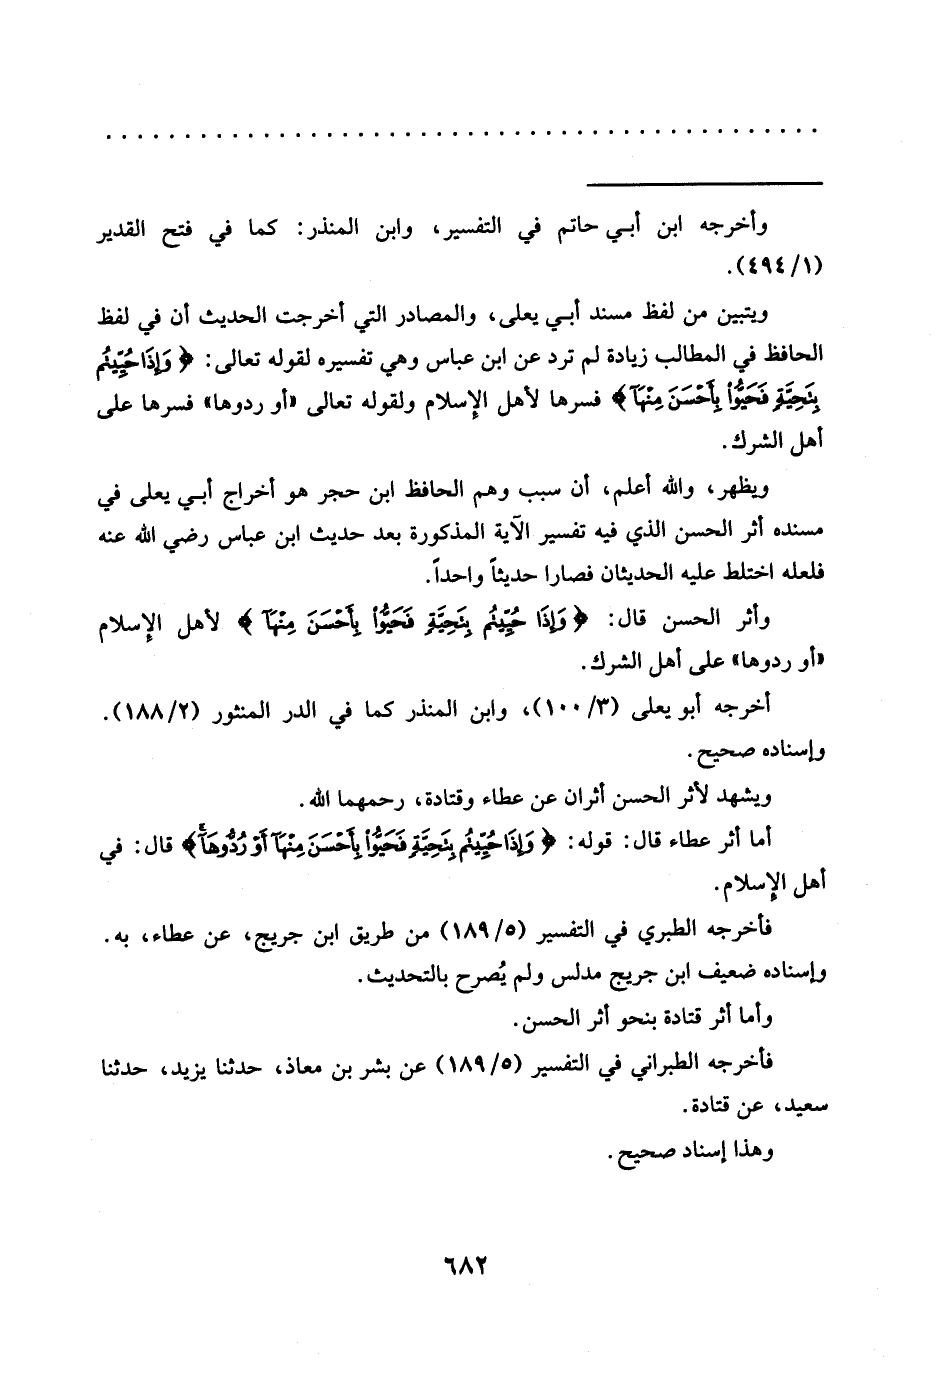 وأخرجه ابن أبـي حاتم في التفسير، وابن المنذر: كما في فتح القدير
(١/٤٩٤).
ويتبين من لفظ مسند أبـي يعلى، والمصادر التي أخرجت الحديث أن في لفظ
الحافظ في المطالب زيادة لم ترد عن ابن عباس وهي تفسيره لقوله تعالى: ﴿وَإِذَا حُيِّيتُم
بِتَحِيَّةٍ فَحَيُّوا۟ بِأَحْسَنَ مِنْهَآ﴾ فسرها لأهل الإسلام ولقوله تعالى «أو ردوها» فسرها على
أهل الشرك.
ويظهر، والله أعلم، أن سبب وهم الحافظ ابن حجر هو أخراج أبـي يعلى في
مسنده أثر الحسن الذي فيه تفسير الآية المذكورة بعد حديث ابن عباس رضي الله عنه
فلعله اختلط عليه الحديثان فصارا حديثاً واحداً.
وأثر الحسن قال: ﴿وَإِذَا حُيِّيتُم بِتَحِيَّةٍ فَحَيُّوا۟ بِأَحْسَنَ مِنْهَآ﴾ لأهل الإسلام
«أو ردوها» على أهل الشرك.
أخرجه أبو يعلى (٣/١٠٠)، وابن المنذر كما في الدر المنثور (٢/١٨٨).
وإسناده صحيح.
ويشهد لأثر الحسن أثران عن عطاء وقتادة، رحمهما الله.
أما أثر عطاء قال: قوله: ﴿وَإِذَا حُيِّيتُم بِتَحِيَّةٍ فَحَيُّوا۟ بِأَحْسَنَ مِنْهَآ أَوْ رُدُّوهَآۗ﴾ قال: في
أهل الإسلام.
فأخرجه الطبري في التفسير (٥/١٨٩) من طريق ابن جريج، عن عطاء، به.
وإسناده ضعيف ابن جريج مدلس ولم يُصرح بالتحديث.
وأما أثر قتادة بنحو أثر الحسن.
فأخرجه الطبراني في التفسير (٥/١٨٩) عن بشر بن معاذ، حدثنا يزيد، حدثنا
سعيد، عن قتادة.
وهذا إسناد صحيح.
٦٨٢